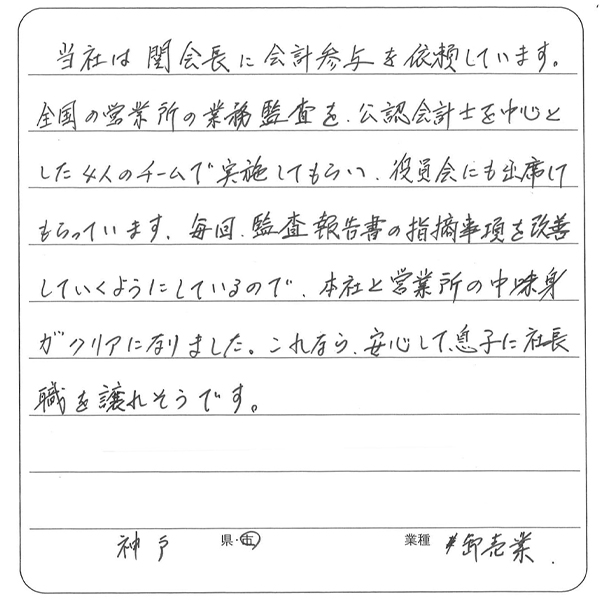 当社は関会長に会計参与を依頼しています。
全国の営業所の業務監査を、公認会計士を中心と
した4人のチームで実施してもらい、役員会にも出席して
もらっています。毎回、監査報告書の指摘事項を改善
していくようにしているので、本社と営業所の中味身
がクリアになりました。これなら、安心して、息子に社長
職を譲れそうです。
神戸 県・市 業種 卸売業.